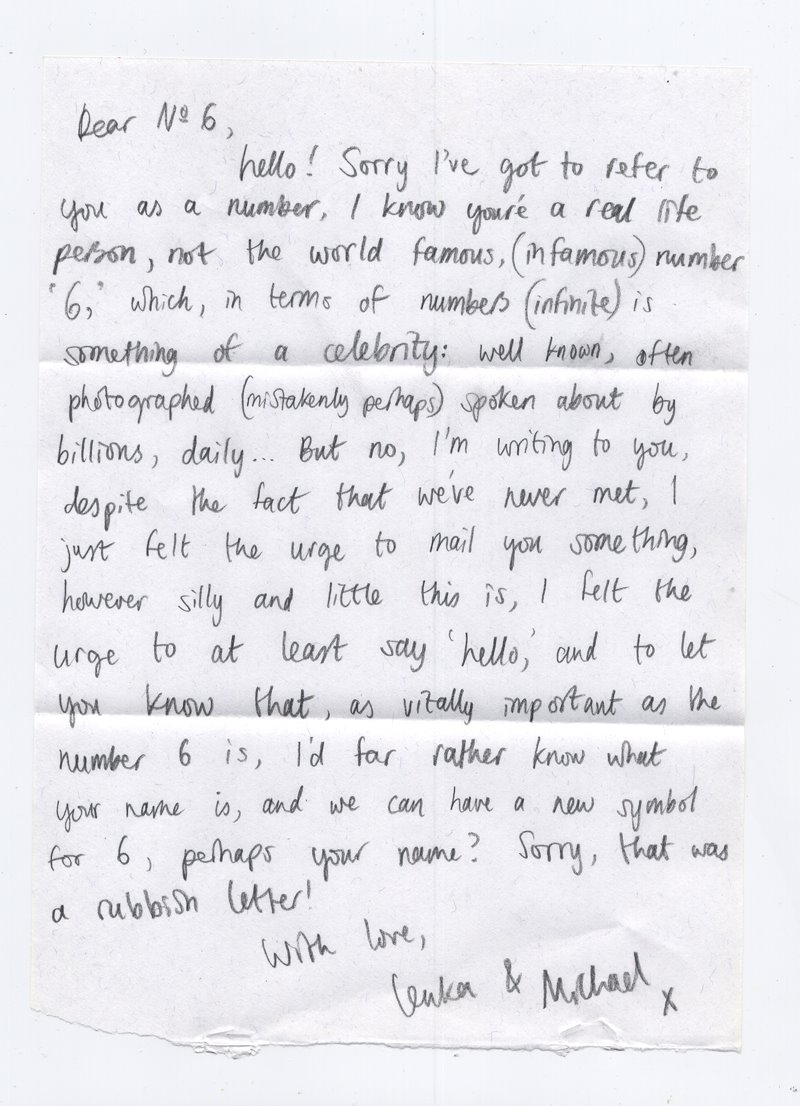 Dear Nº 6,
hello! Sorry I've got to refer to
you as a number, I know you're a real life
person, not the world famous, (infamous) number
'6,' which, in terms of numbers (infinite) is
something of a celebrity: well known, often
photographed (mistakenly perhaps) spoken about by
billions, daily... But no, I'm writing to you,
despite the fact that we've never met, I
just felt the urge to mail you something,
however silly and little this is, I felt the
urge to at least say 'hello,' and to let
you know that, as vitally important as the
number 6 is, I'd far rather know what
your name is, and we can have a new symbol
for 6, perhaps your name? Sorry, that was
a rubbish letter!
With love,
Lenka & Michael x